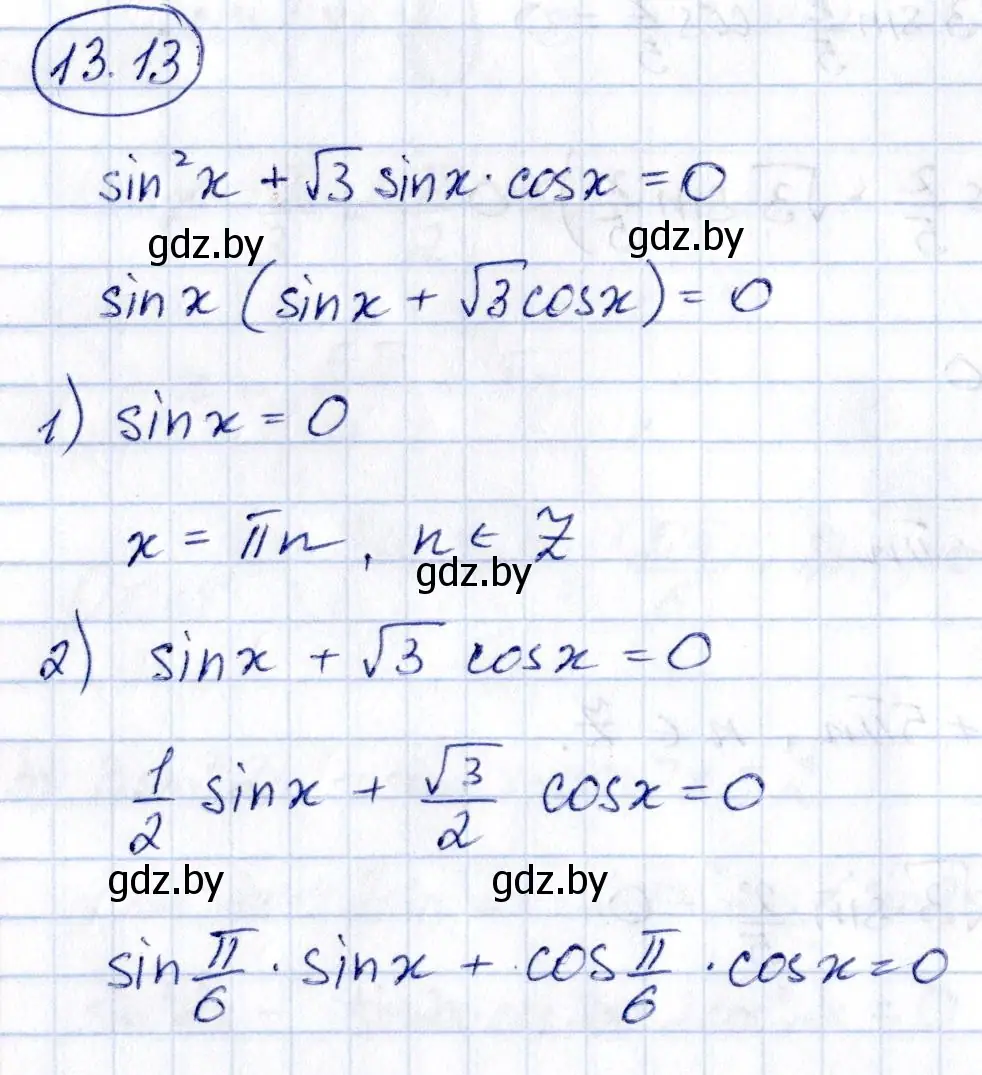 13.13
sin²x + √3 sinx · cosx = 0
gdz.by gdz.by
sinx (sinx + √3 cosx) = 0
1) sinx = 0
x = πn, n ∈ Z
gdz.by
2) sinx + √3 cosx = 0
1/2 sinx + √3/2 cosx = 0
gdz.by gdz.by
sin π/6 · sinx + cos π/6 · cosx = 0